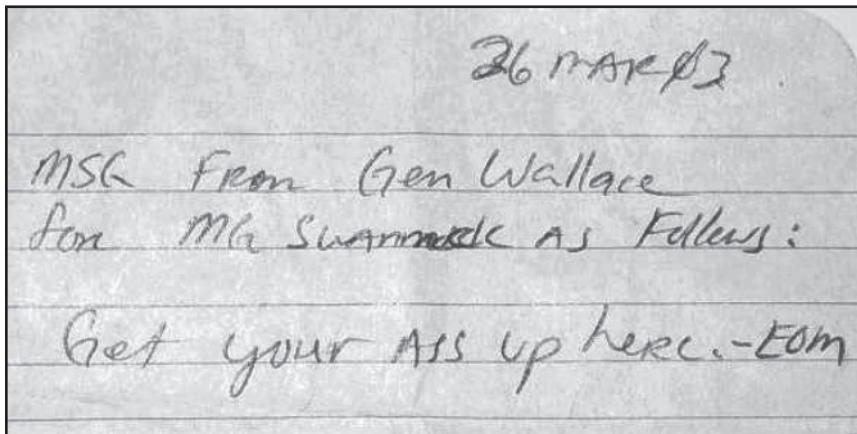 26 MAR 03
MSG From Gen Wallace
for MG Swannack As Follows:
Get your Ass up here.-EOM